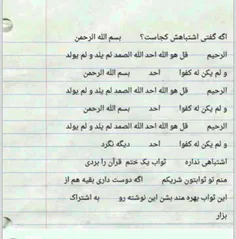 اگه گفتی اشتباهش کجاست؟ بسم الله الرحمن
الرحیم قل هو الله احد الله الصمد لم یلد و لم یولد
و لم یکن له کفوا احد بسم الله الرحمن
الرحیم قل هو الله احد الله الصمد لم یلد و لم یولد
و لم یکن له کفوا احد بسم الله الرحمن
الرحیم قل هو الله احد الله الصمد لم یلد و لم یولد
و لم یکن له کفوا احد دیگه نگرد
اشتباهی نداره ثواب یک ختم قرآن را بردی
منم تو ثوابتون شریکم اگه دوست داری بقیه هم از
این ثواب بهره مند بشن این نوشته رو به اشتراک
بزار